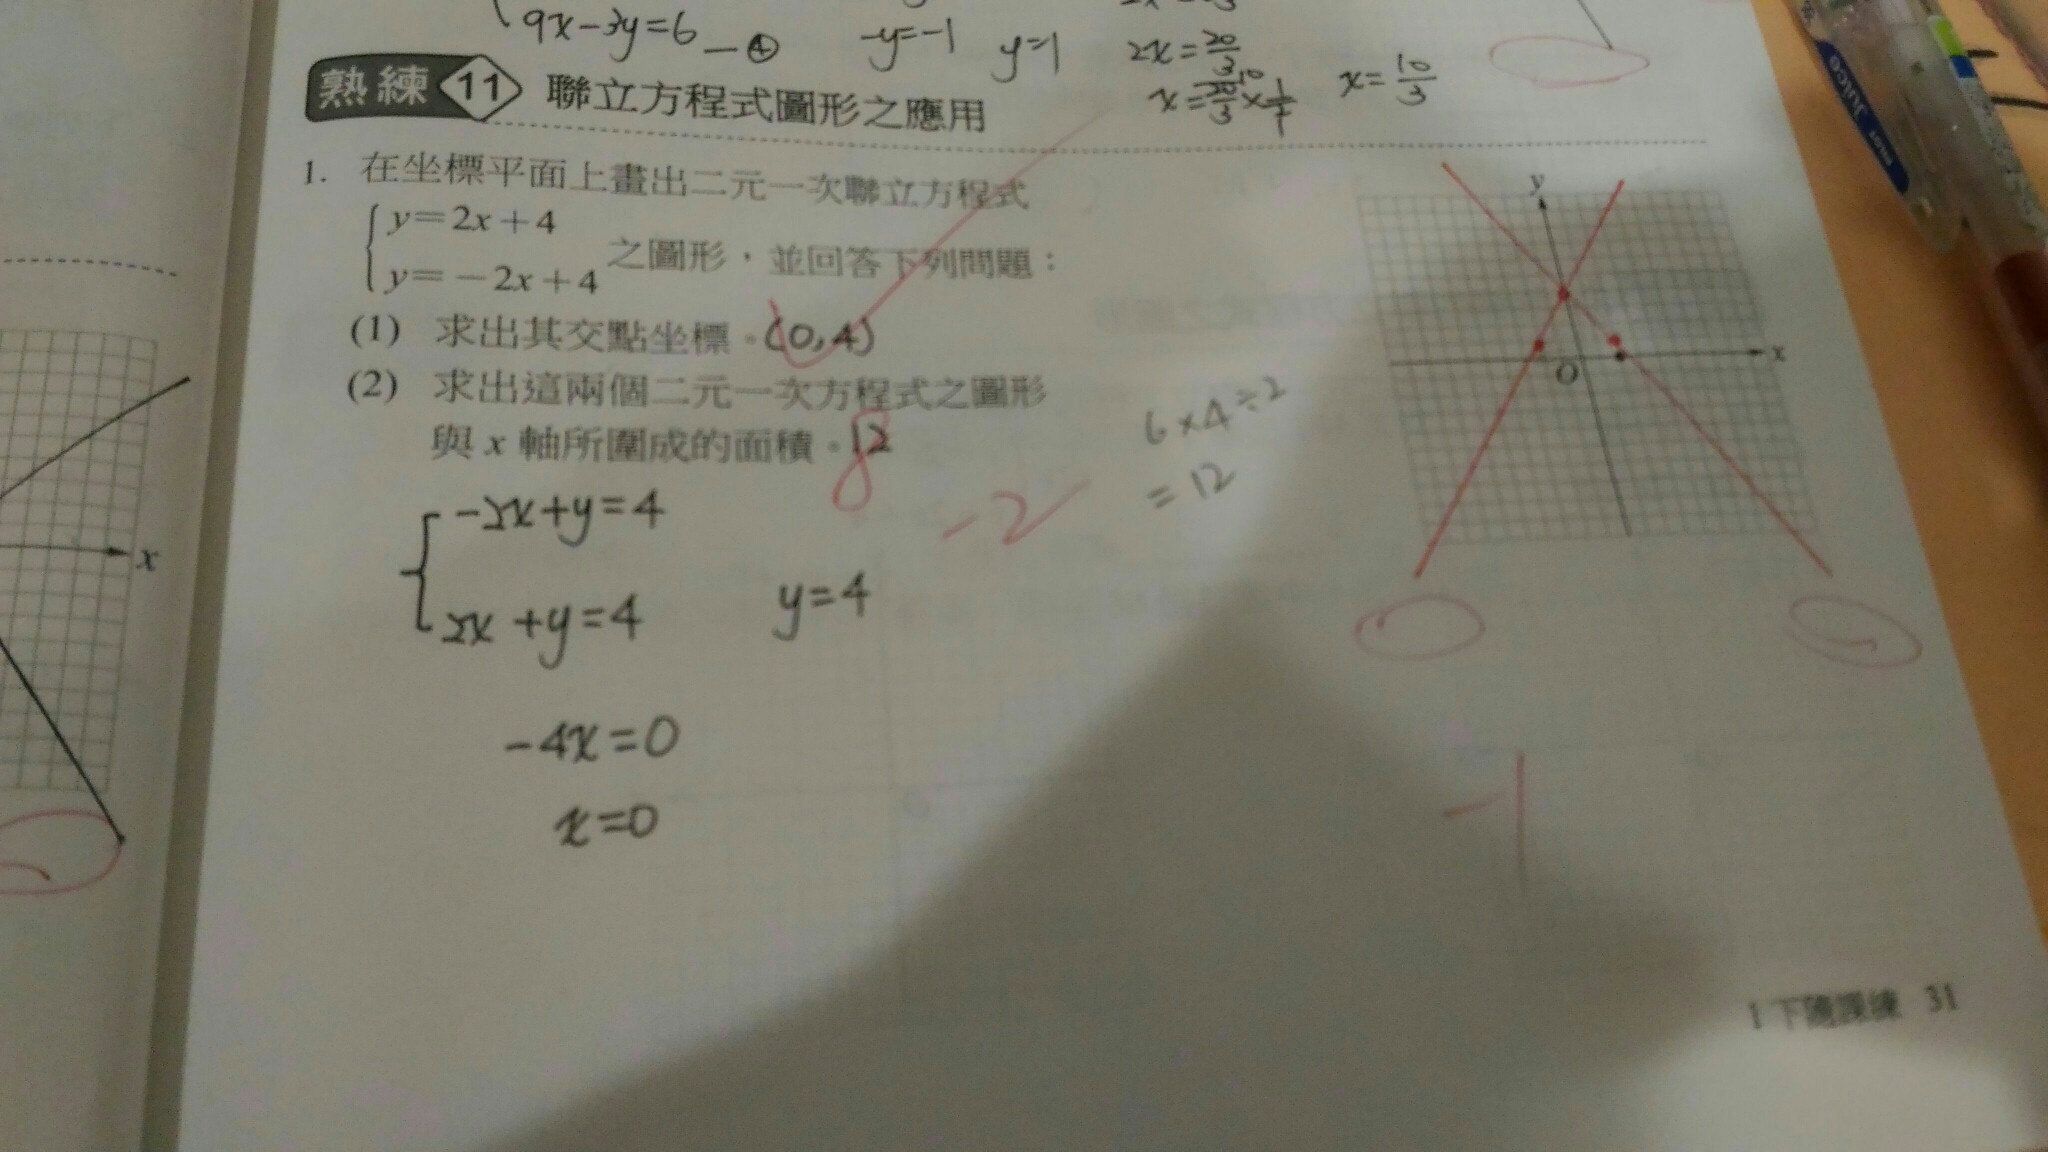 9x-3y=6 -④
-y=-1 y=1
2x=20/3
x=20/3×1/2 x=10/3
熟練 11 聯立方程式圖形之應用
1. 在坐標平面上畫出二元一次聯立方程式
y=2x+4
y=-2x+4 之圖形，並回答下列問題：
(1) 求出其交點坐標。(0,4)
(2) 求出這兩個二元一次方程式之圖形
與 x 軸所圍成的面積。12
8
-2
6×4÷2
=12
-2x+y=4
2x+y=4 y=4
-4x=0
x=0
y
x
O
-1
x
1下隨課練 31
Juice